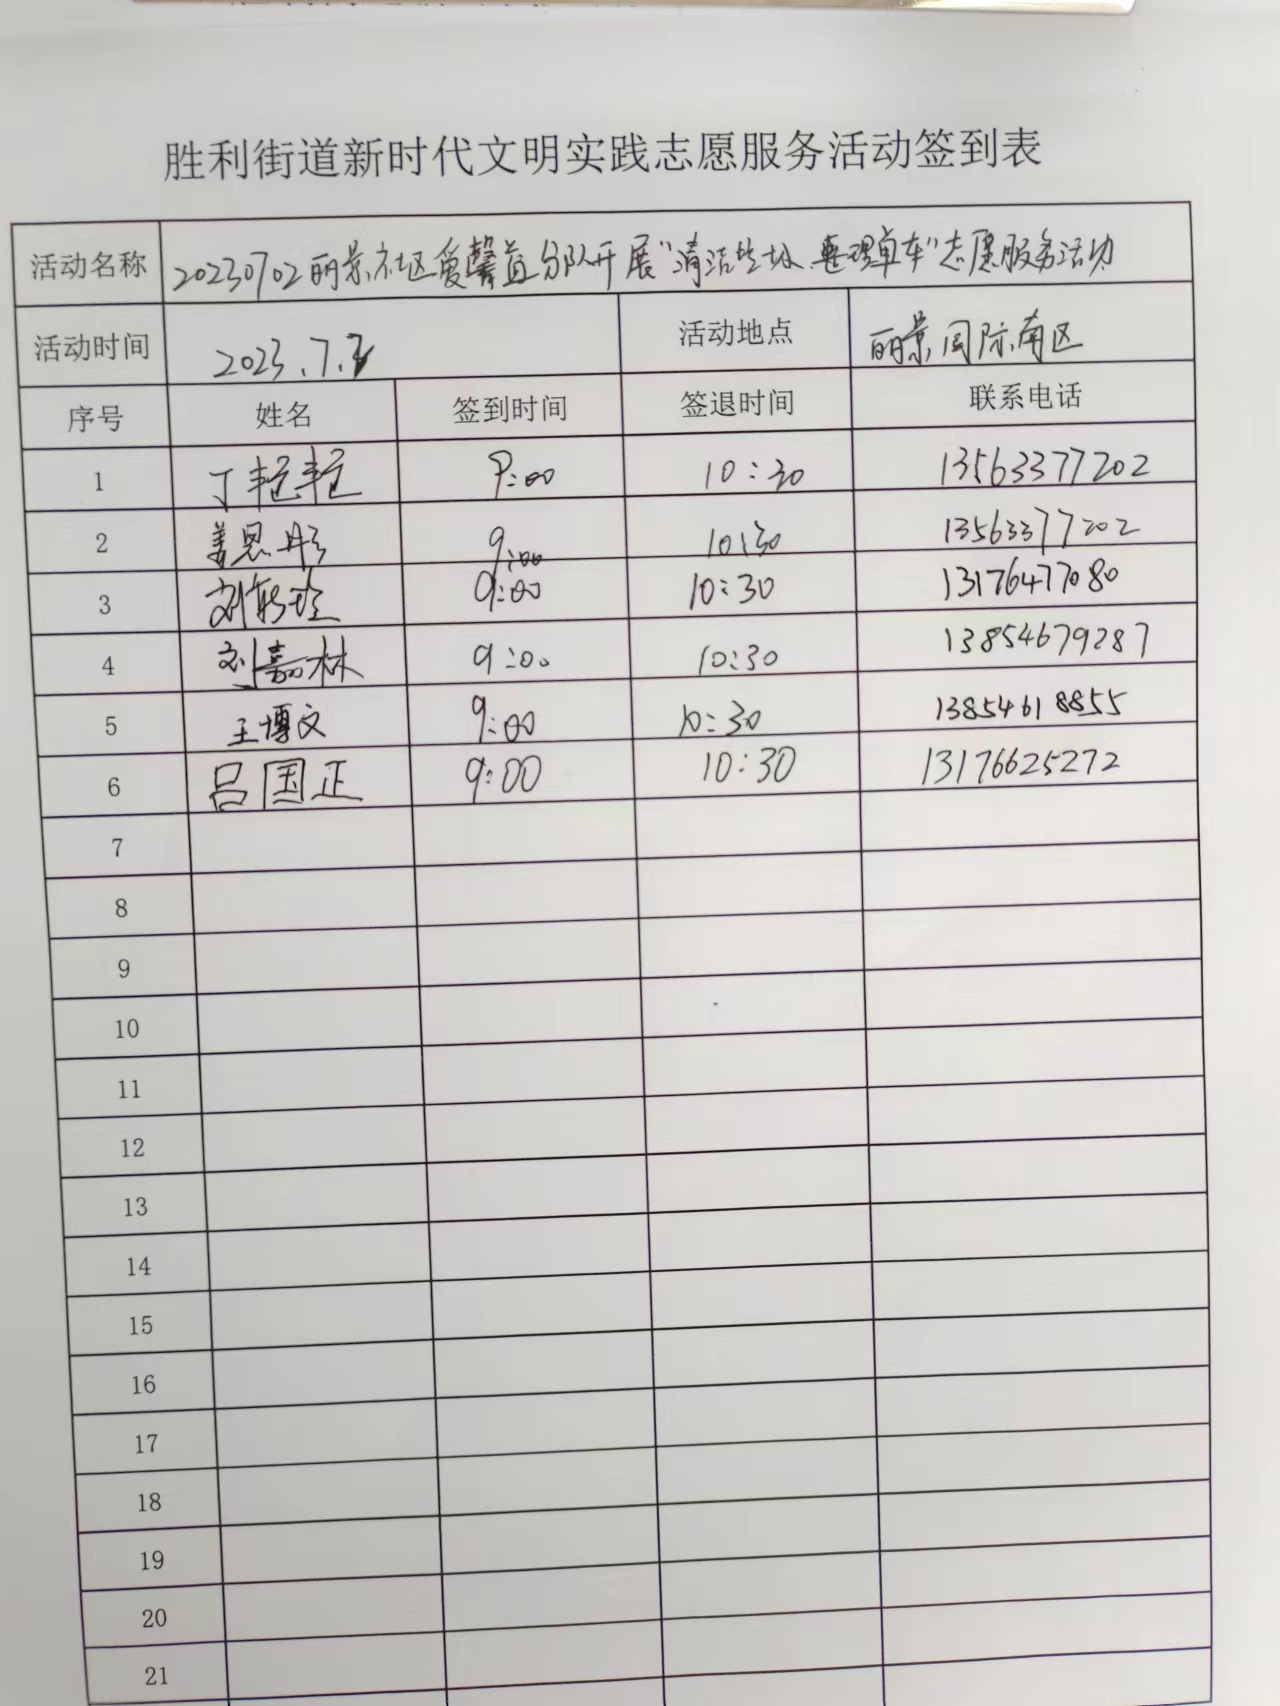 胜利街道新时代文明实践志愿服务活动签到表
活动名称 20230702丽景社区爱馨益分队开展“清洁垃圾、整理单车”志愿服务活动
活动时间 2023.7.2 活动地点 丽景国际南区
序号 姓名 签到时间 签退时间 联系电话
1 丁艳艳 9:00 10:30 13563377202
2 姜恩彤 9:00 10:30 13563377202
3 刘 9:00 10:30 13176477080
4 刘嘉林 9:00 10:30 13854679287
5 王博文 9:00 10:30 13854618855
6 吕国正 9:00 10:30 13176625272
7
8
9
10
11
12
13
14
15
16
17
18
19
20
21